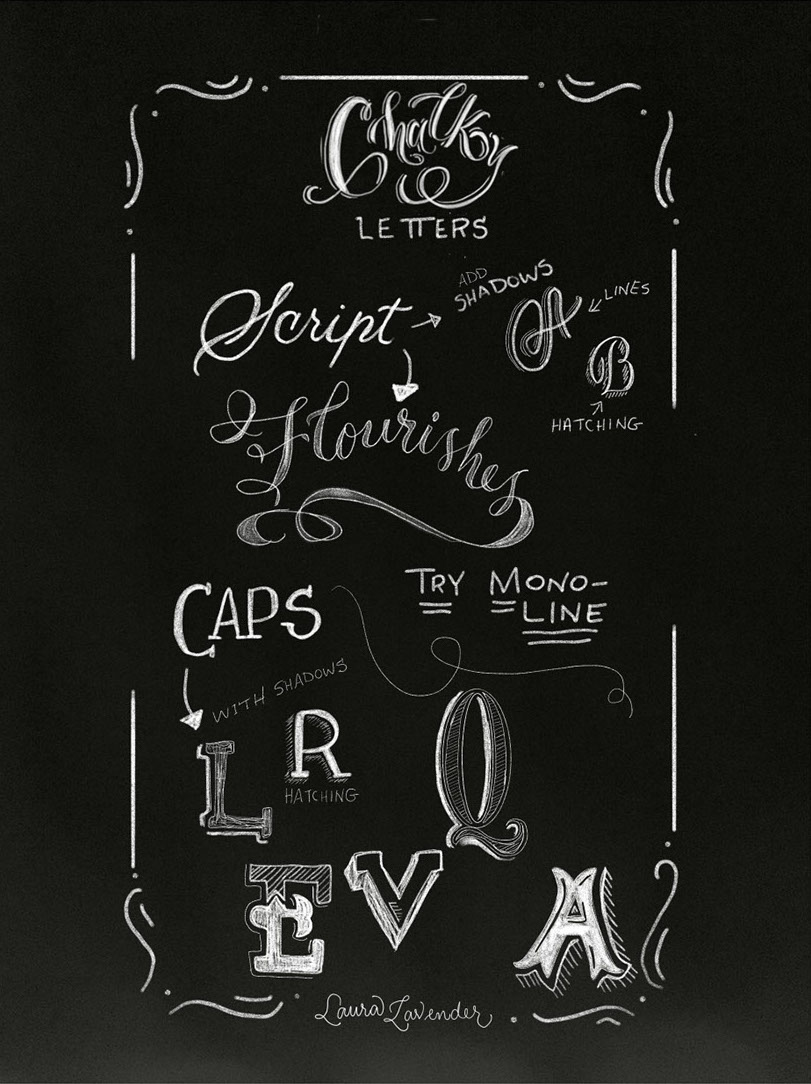 Chalky
LETTERS
Script
ADD
SHADOWS
LINES
A
B
HATCHING
Flourishes
CAPS
TRY MONO-
LINE
WITH SHADOWS
L
R
HATCHING
Q
E
V
A
Laura Lavender